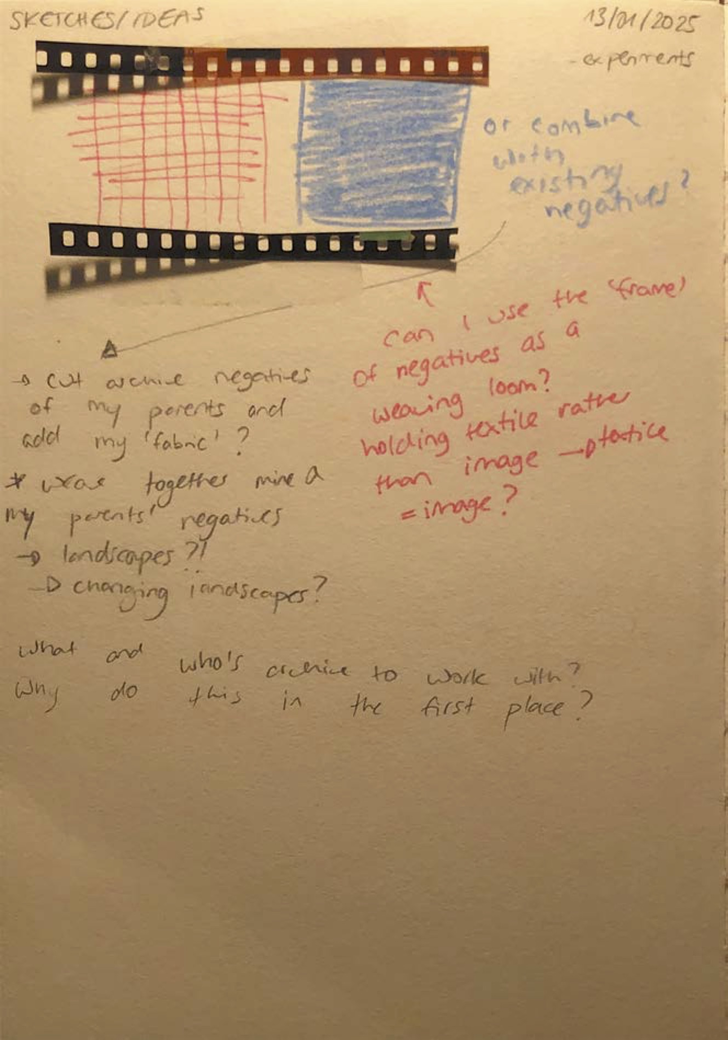 SKETCHES/IDEAS
13/01/2025
- experiments
or combine
with
existing
negatives?
can I use the 'frame'
of negatives as a
weaving loom?
holding textile rather
than image → tactile
= image?
→ cut archive negatives
of my parents and
add my 'fabric'?
* weave together mine &
my parents' negatives
→ landscapes?!
→ changing landscapes?
what and who's archive to work with?
why do this in the first place?